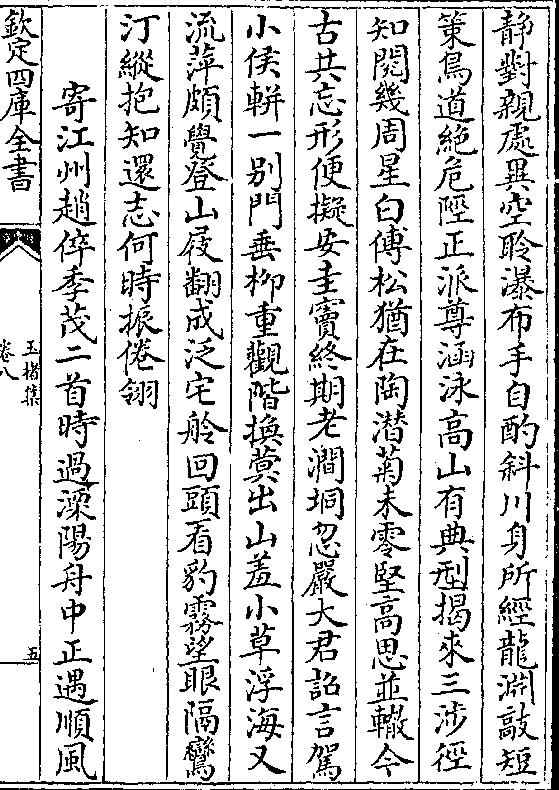 静對親處異空聆瀑布手自酌斜川身所經龍淵敲短
策鳥道絶危陘正派尊涵泳高山有典型朅來三涉徑
知閲幾周星白傅松猶在陶潛菊未零堅高思並轍今
古共忘形便擬安圭竇終期老澗坰忽嚴大君詔言駕
小侯軿一别門垂栁重觀階換蓂出山羞小草浮海又
流萍頗覺登山屐翻成泛宅舲回頭看豹霧望眼隔鸞
汀縱抱知還志何時振倦翎
寄江州趙倅季茂二首時過溧陽舟中正遇順風
欽定四庫全書
玉楮集
卷八
五